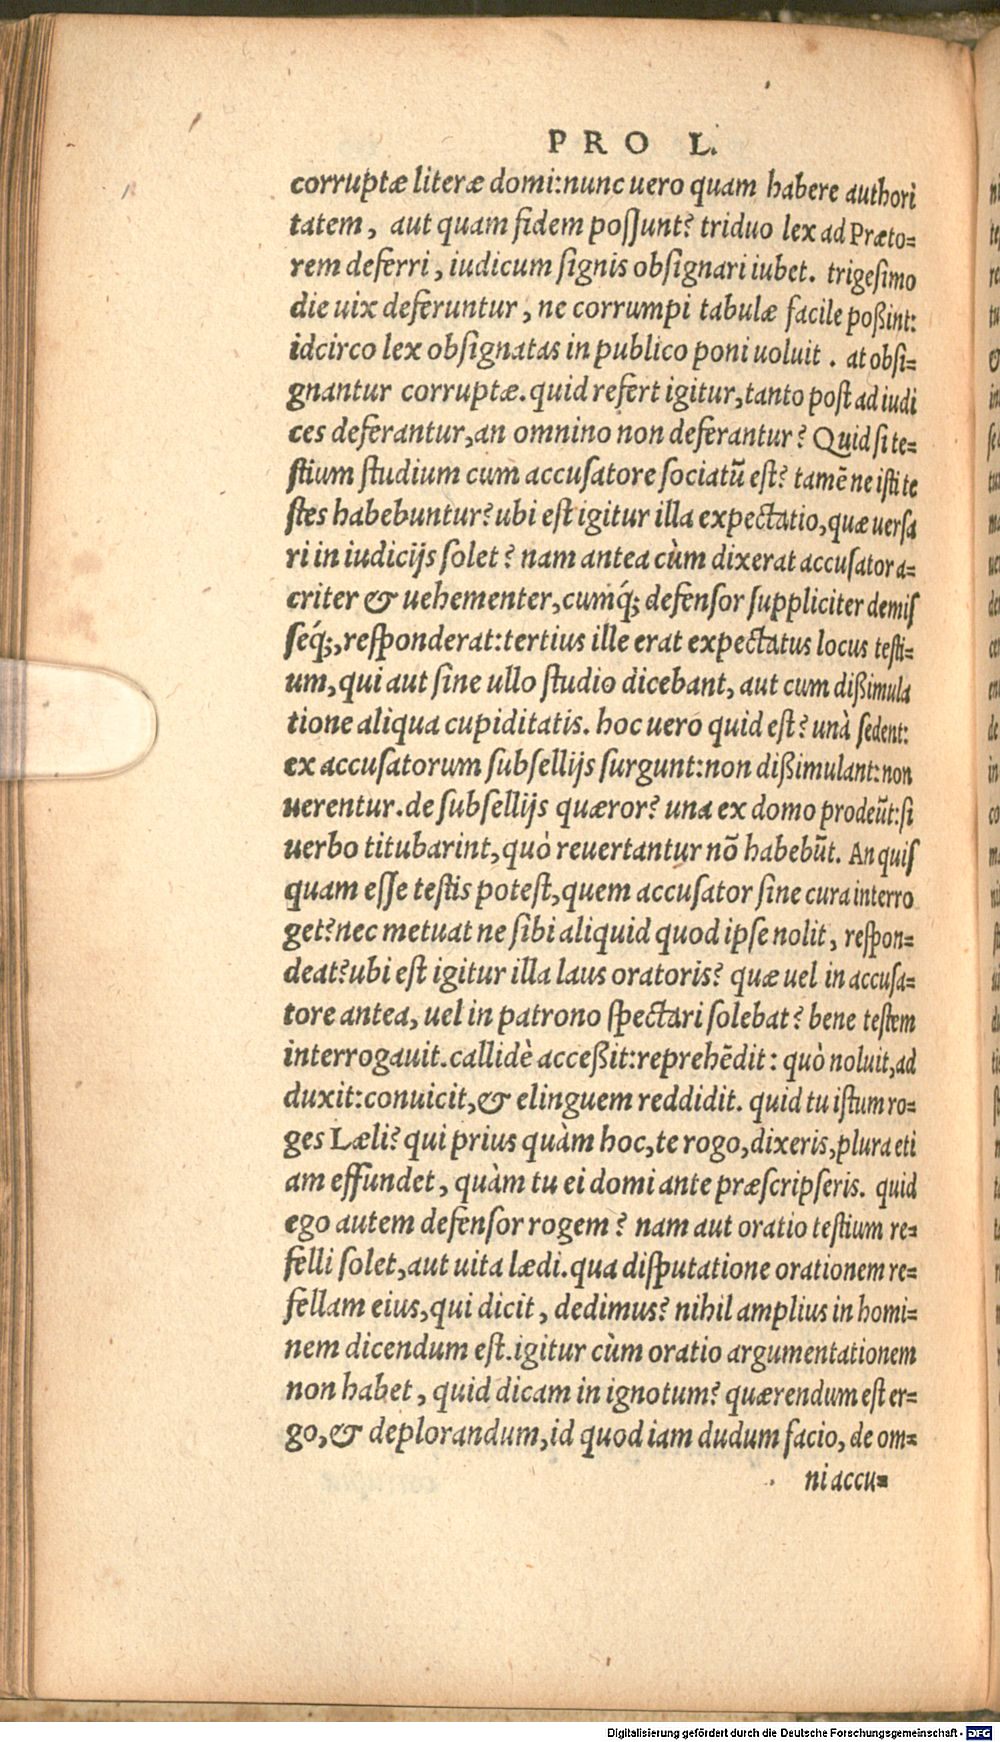 PRO L.
corruptæ literæ domi:nunc uero quam habere authori
tatem, aut quam fidem possunt? triduo lex ad Præto=
rem deferri, iudicum signis obsignari iubet. trigesimo
die uix deferuntur, ne corrumpi tabulæ facile poßint:
idcirco lex obsignatas in publico poni uoluit. at obsi=
gnantur corruptæ. quid refert igitur,tanto post ad iudi
ces deferantur,an omnino non deferantur? Quid si te=
stium studium cum accusatore sociatū est? tamē ne isti te
stes habebuntur? ubi est igitur illa expectatio,quæ uersa
ri in iudicijs solet? nam antea cùm dixerat accusator a=
criter & uehementer,cumq́; defensor suppliciter demis
seq́;,responderat:tertius ille erat expectatus locus testi=
um,qui aut sine ullo studio dicebant, aut cum dißimula
tione aliqua cupiditatis. hoc uero quid est? unà sedent:
ex accusatorum subsellijs surgunt:non dißimulant:non
uerentur.de subsellijs quæror? una ex domo prodeūt:si
uerbo titubarint,quò reuertantur nō habebūt. An quis
quam esse testis potest,quem accusator sine cura interro
get?nec metuat ne sibi aliquid quod ipse nolit, respon=
deat?ubi est igitur illa laus oratoris? quæ uel in accusa=
tore antea, uel in patrono spectari solebat? bene testem
interrogauit.callidè acceßit:reprehēdit: quò noluit,ad
duxit:conuicit,& elinguem reddidit. quid tu istum ro=
ges Læli? qui prius quàm hoc,te rogo,dixeris,plura eti
am effundet, quàm tu ei domi ante præscripseris. quid
ego autem defensor rogem? nam aut oratio testium re=
felli solet,aut uita lædi.qua disputatione orationem re=
fellam eius,qui dicit, dedimus? nihil amplius in homi=
nem dicendum est.igitur cùm oratio argumentationem
non habet, quid dicam in ignotum? quærendum est er=
go,& deplorandum,id quod iam dudum facio, de om=
ni accu=
Digitalisierung gefördert durch die Deutsche Forschungsgemeinschaft - DFG